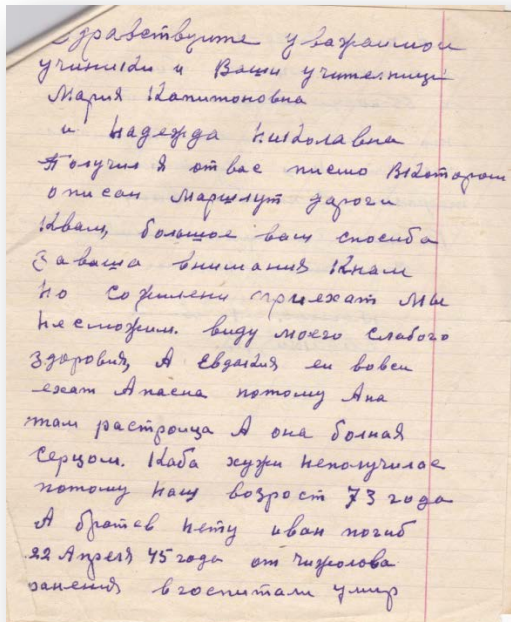 Здравствуите уважаимои
учиники и Ваши учителници
Мария Капитоновна
и Надежда Николавна
Получил я от вас писмо Вкотором
описан Маршлут дароги
Квам, большое вам спосиба
За ваша внимания Кнам
но сожилени приехат мы
несможим. виду моего слабого
здоровия, А Евдакия еи вовси
ехат Апасна потому Ана
там растроица А она болная
Серцом. Каба хужи неполучилос
потому наш возрост 73 года
А братев нету иван погиб
22 Апреля 45 года от чижолова
ранения вгоспитали умир